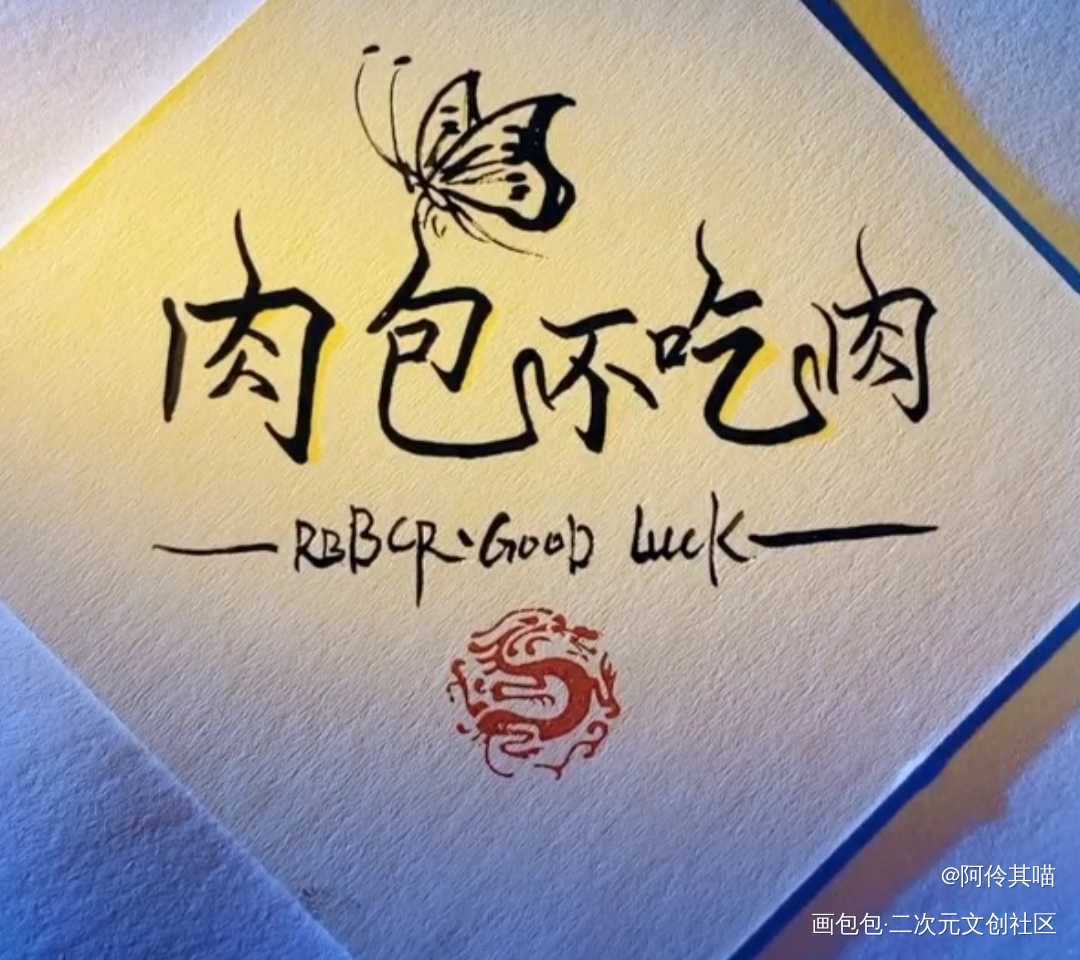 肉包不吃肉
RBBCR·Good Luck
@阿伶其喵
画包包·二次元文创社区